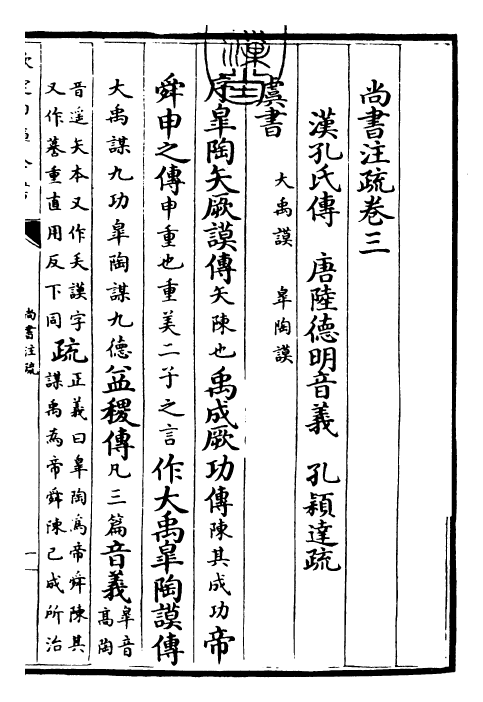 尚書注疏卷三
漢孔氏傳 唐陸德明音義 孔穎達疏
虞書
大禹謨 皋陶謨
序皋陶矢厥謨傳矢陳也禹成厥功傳陳其成功帝
舜申之傳申重也重美二子之言作大禹皋陶謨傳
大禹謀九功皋陶謀九德益稷傳凡三篇音義皋音高陶
音遥矢本又作𠂕謨字又作謩重直用反下同疏正義曰皋陶為帝舜陳其謀禹為帝舜陳已成所治
尚書注疏
一